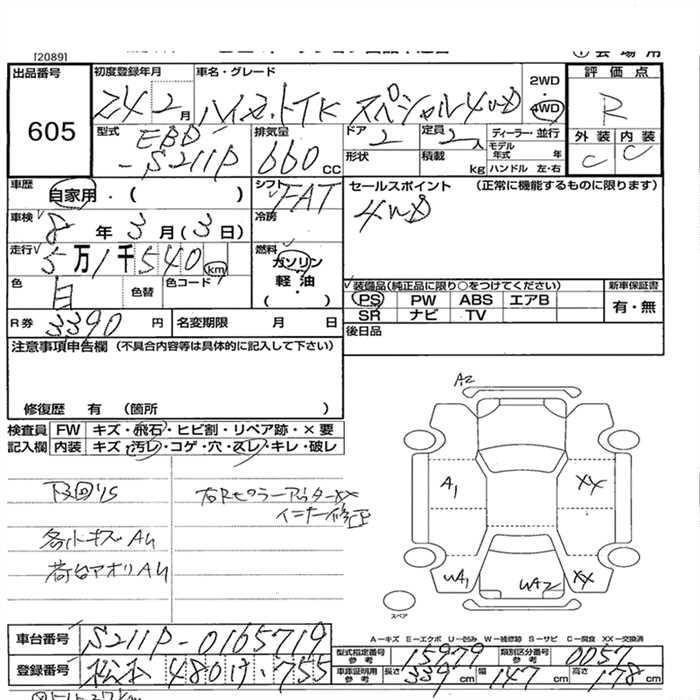 [2089]
出品番号
605
初度登録年月
24 2月
車名・グレード
ハイゼットTK スペシャル4WD
2WD
4WD
評価点
R
外装 内装
C C
型式
EBD-S211P
排気量
660 cc
ドア
2
定員
2人
ディーラー・並行
モデル年式 年
形状
積載 kg
ハンドル 左・右
車歴
自家用・( )
シフト
FAT
セールスポイント (正常に機能するものに限ります)
4WD
車検
8年 3月(3日)
冷房
走行
5万1千540km
燃料
ガソリン・軽油
色
白
色替
色コード
装備品(純正品に限り○をつけてください)
新車保証書
PS PW ABS エアB
有・無
SR ナビ TV
後日品
R券 3390円
名変期限 月 日
注意事項申告欄 (不具合内容等は具体的に記入して下さい)
修復歴 有 (箇所 )
検査員記入欄
FW キズ・飛石・ヒビ割・リペア跡・×要
内装 キズ・汚レ・コゲ・穴・スレ・キレ・破レ
下回りS
各小キズAU
荷台アオリAU
右RピラーアウターXX
インナー修正
A2
A1
XX
UA1
UA2
XX
スペア
A—キズ E—エクボ U—凹み W—補修跡 S—サビ C—腐食 XX—交換済
車台番号
S211P-0165719
登録番号
松本 480け・755
型式指定番号 参考
15979
類別区分番号 参考
0057
車庫証明用 参考
長さ 339cm
幅 147cm
高さ 178cm